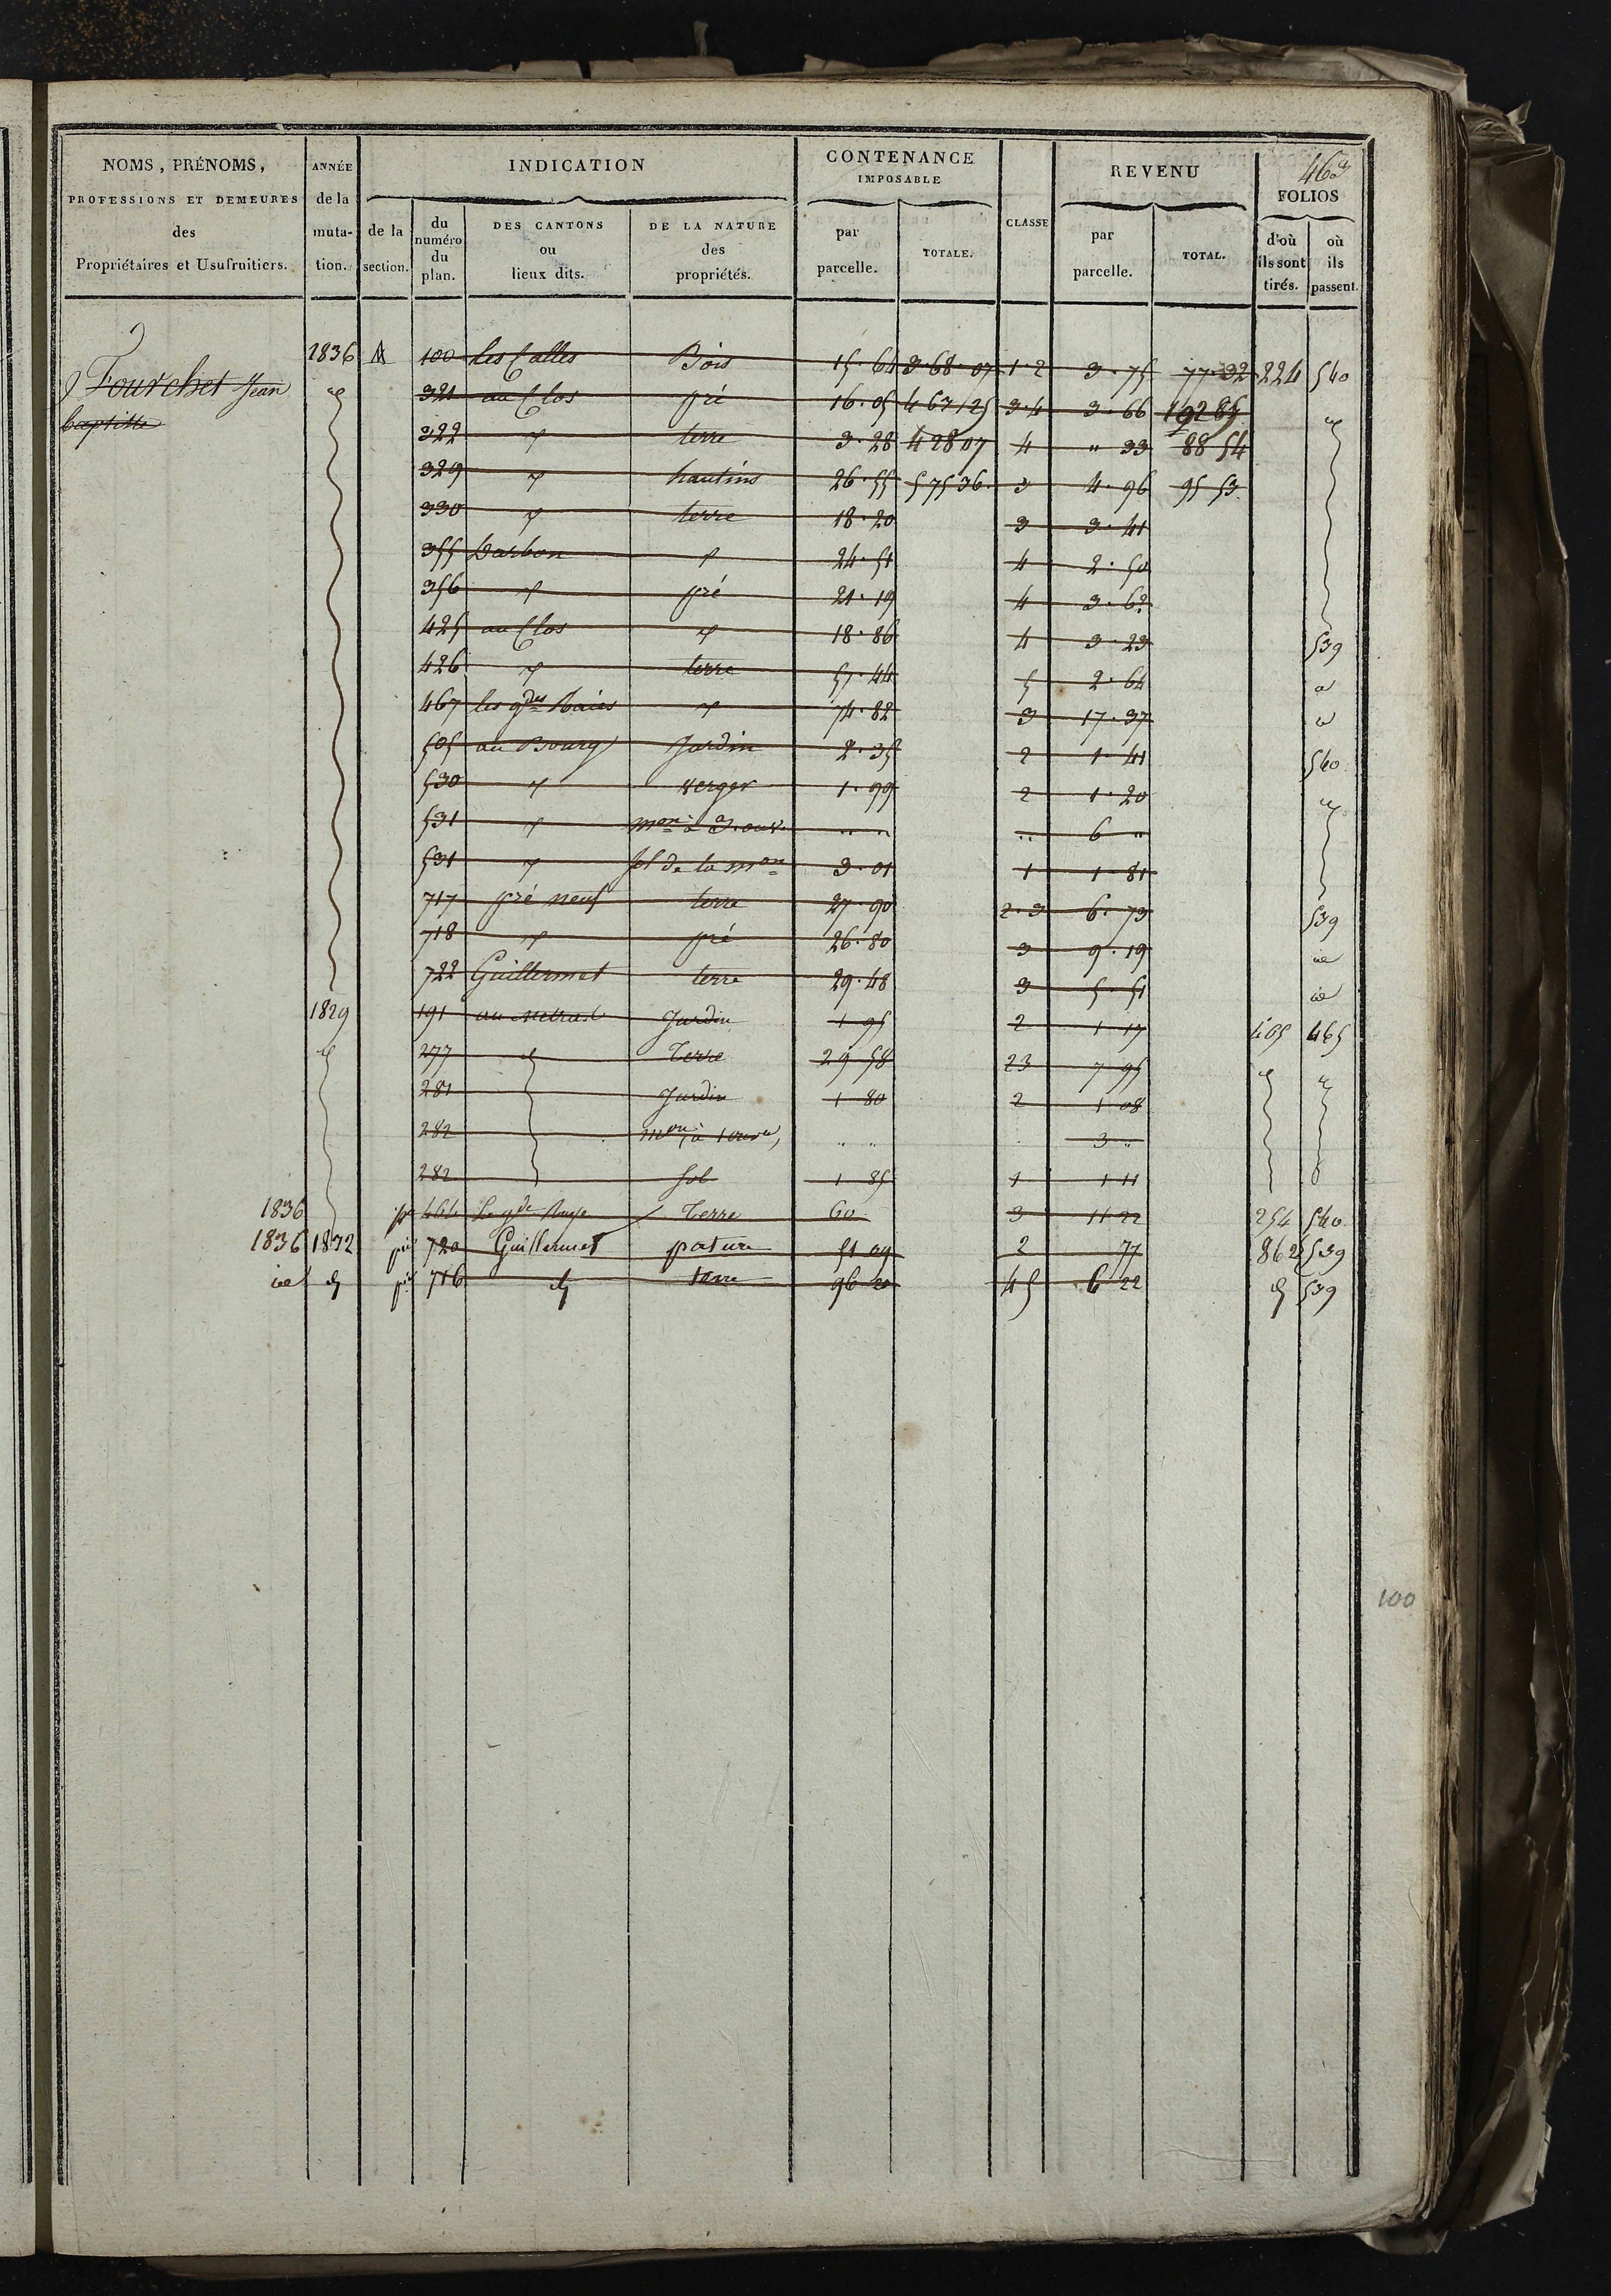 463
NOMS, PRÉNOMS, PROFESSIONS ET DEMEURES des Propriétaires et Usufruitiers.
ANNÉE de la muta- tion.
INDICATION
de la section.
du numéro du plan.
DES CANTONS ou lieux dits.
DE LA NATURE des propriétés.
CONTENANCE IMPOSABLE
par parcelle.
TOTALE.
CLASSE
REVENU
par parcelle.
TOTAL.
FOLIOS
d'où ils sont tirés.
où ils passent.
Fourchet Jean
baptiste
1836 A 100 les Calles Bois 15.64 3.68.07 1.2 3.75 77.32 224 540
id 321 au Clos pré 16.05 4 67 125 3.4 3.66 192 85 id
322 " terre 3.28 4 28 07 4 " 33 88 54
329 " hautins 26.55 5 75 36 3 4.96 95 53
330 " terre 18.20 3 3.41
355 Darbon " 24.51 4 2.50
356 " pré 21.19 4 3.62
425 au Clos " 18.86 4 3.23 539
426 " terre 57.44 5 2.64 "
467 les gdes Raies " 74.82 3 17.37 "
505 au Bourg Jardin 2.35 2 1.41 540
530 " verger 1.99 2 1.20 id
531 " mon à 3. ouv. .. .. .. 6 "
531 " sol de la mon 3.01 1 1.81
717 pré neuf terre 27.90 2.3 6.73 539
718 " pré 26.80 3 9.19 id
722 Guillermet terre 29.48 3 5.51 id
1829 191 au Jardin 1 95 2 1 17 405 465
id 277 id Terre 29 58 23 7 95 id id
281 Jardin 1 80 2 1 08
282 mon, à 1 ouvre, " " 3 "
282 sol 1 85 1 1 11
1836 pie 464 Terre 60 3 11 22 254 540
1836 1832 pie 720 Guillermet pature 51 09 2 77 862 539
id d° pie 716 d° terre 96 20 45 6 22 d° 539
100